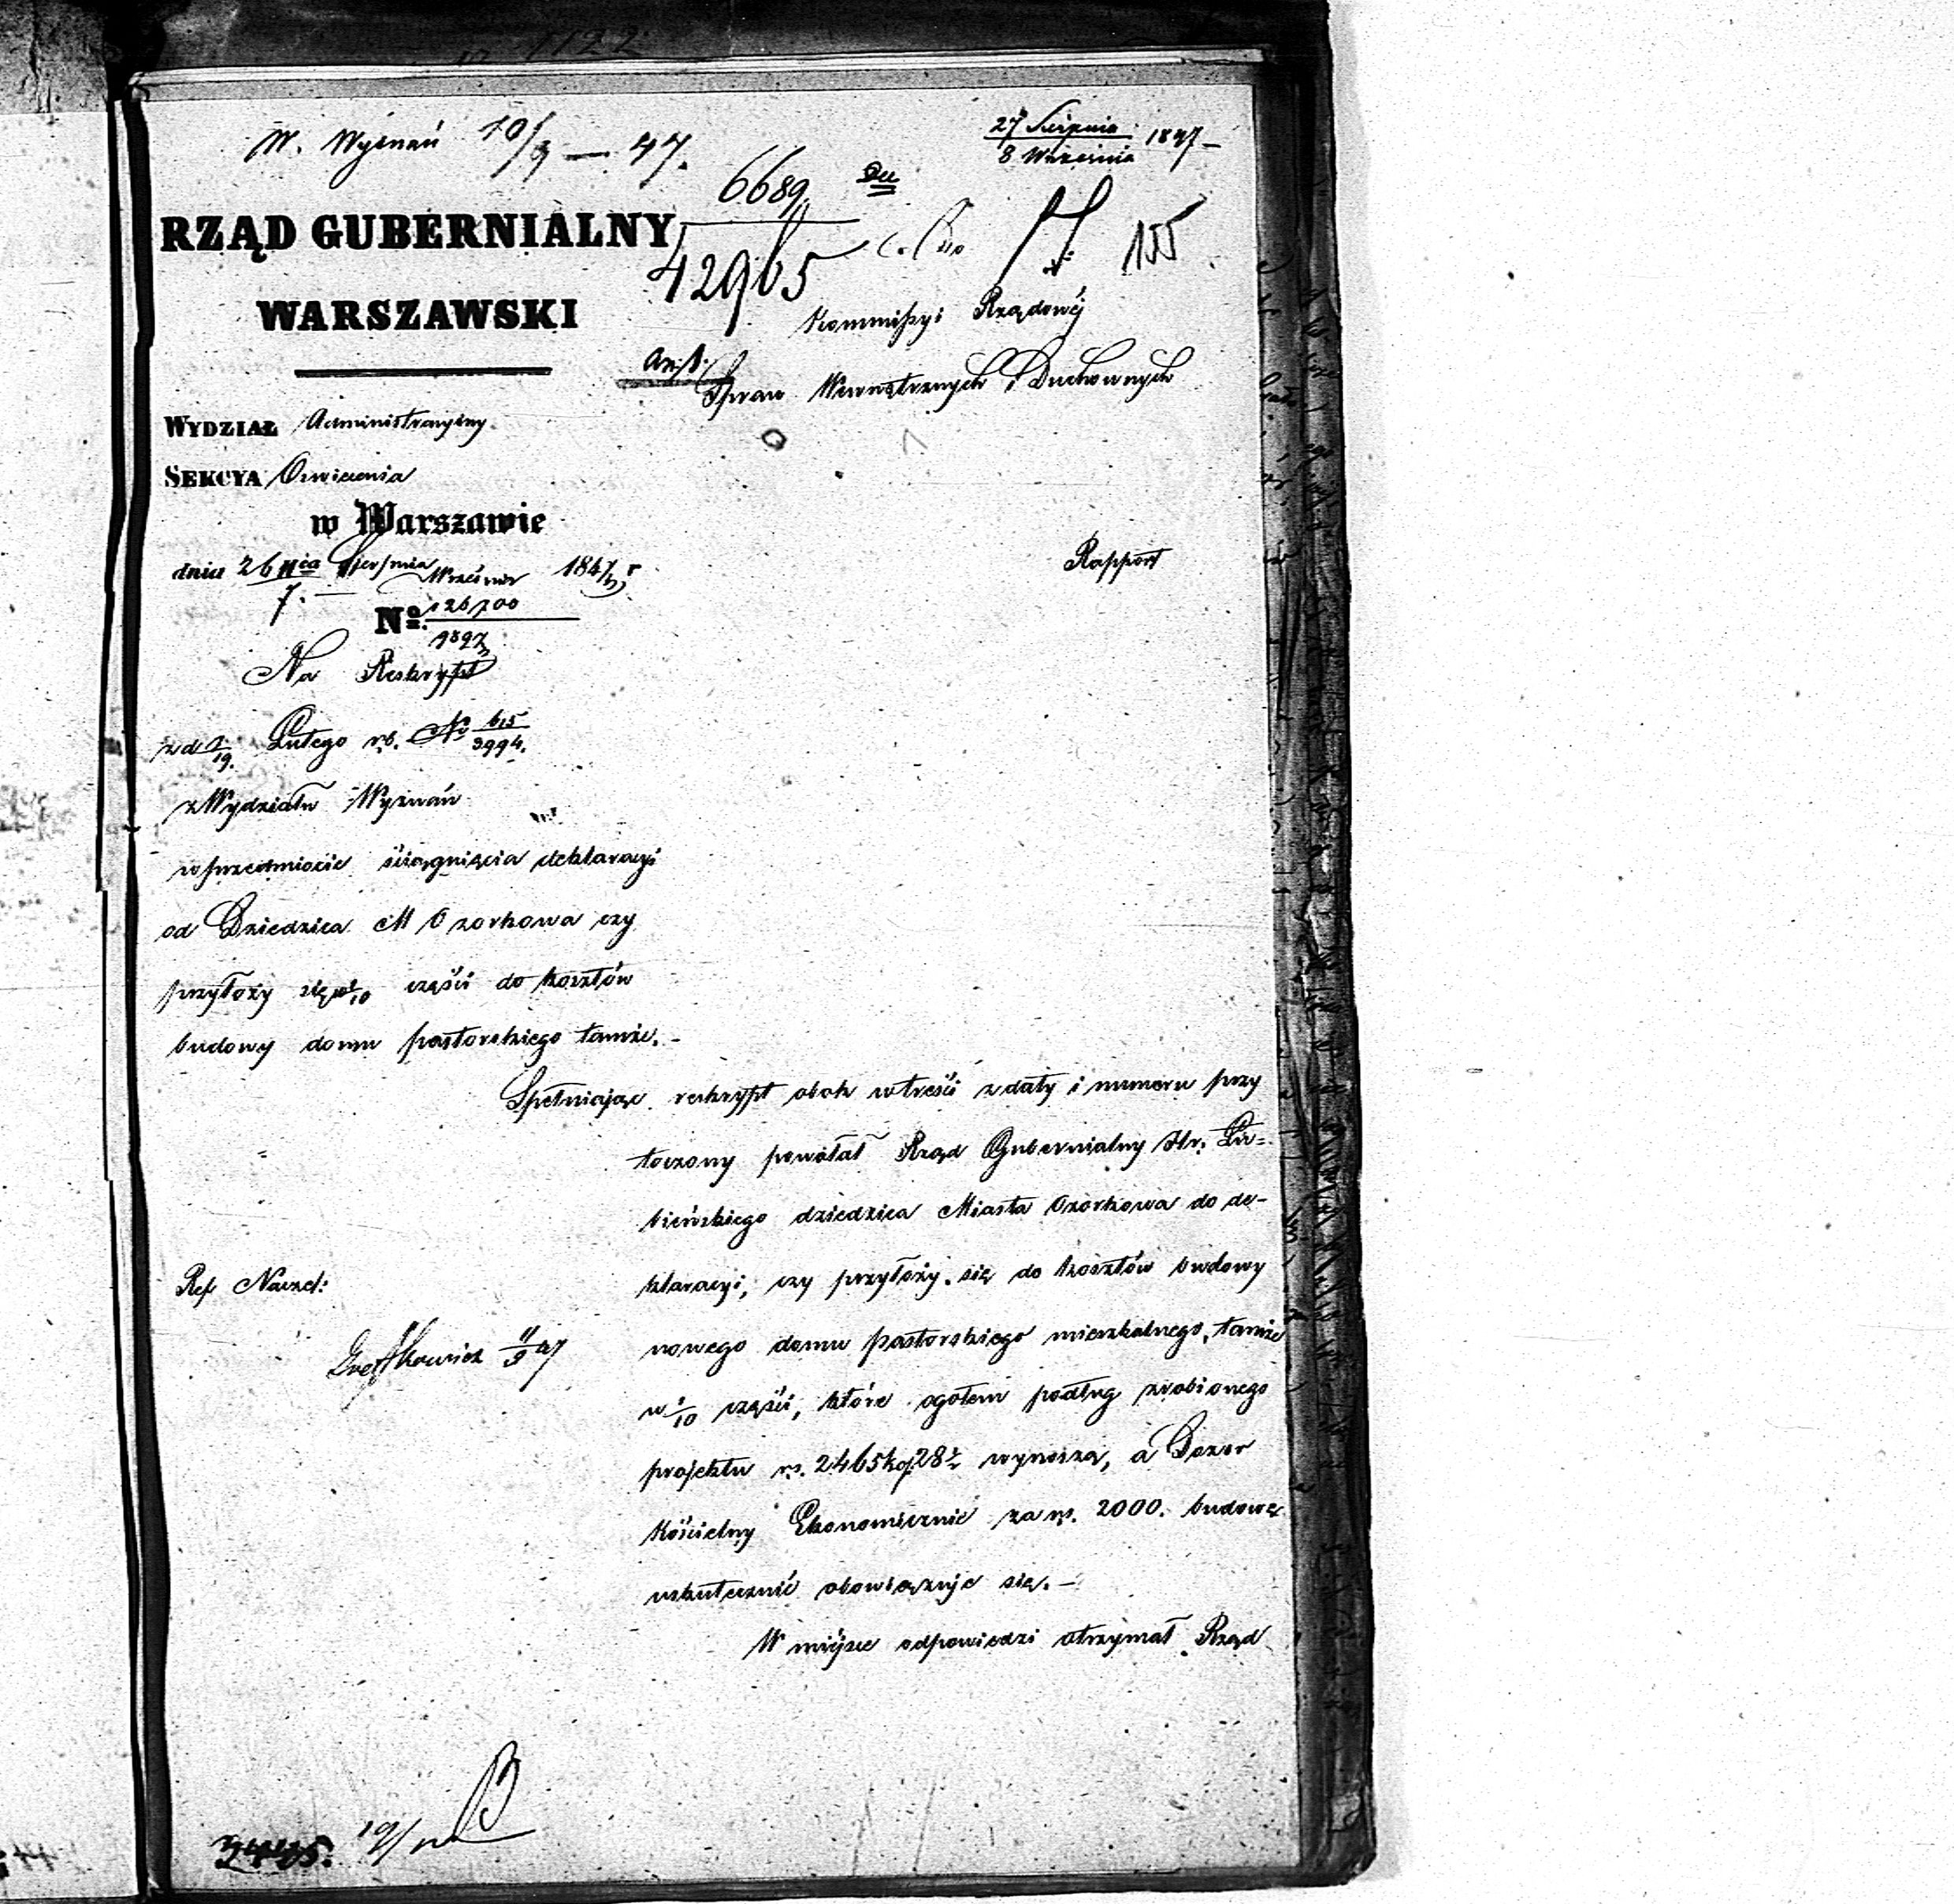 W. Wyznań 10/9 — 47.
27 Sierpnia
8 Września 1847 —
6689
42965
155
RZĄD GUBERNIALNY
WARSZAWSKI
Kommissyi Rządowéj
Spraw Wewnętrznych i Duchownych
WYDZIAŁ Administracyjny
SEKCYA Oświecenia
w Warszawie
dnia 26 Sierpnia
7. Września 1847 r
Rapport
No. 126700
Na Reskrypt
z d 7/19. Lutego rb. No 615/3994.
z Wydziału Wyznań
w przedmiocie ściągnięcia deklaracyi
od Dziedzica M Ozorkowa czy
przyłoży się w 1/10 części do kosztów
budowy domu pastorskiego tamże. -
Spełniając reskrypt obok w treści z daty i numeru przy
toczony powołał Rząd Gubernialny Hr.
bieńskiego dziedzica Miasta Ozorkowa do de-
klaracyi, czy przyłoży się do kosztów budowy
nowego domu pastorskiego mieszkalnego, tamże
w 1/10 części, które ogółem podług zrobionego
projektu rs. 2465 kop 28½ wynoszą, a Dozor
Kościelny Ekonomicznie za rs. 2000. budowę
uskutecznić obowiązuje się. —
W miejsce odpowiedzi otrzymał Rząd
Ref Naczel:
11/9 47